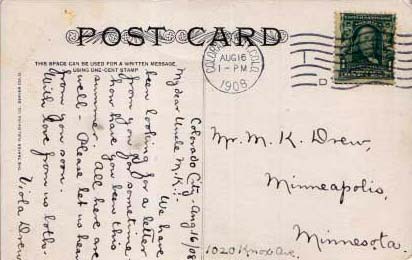 POST CARD
THIS SPACE CAN BE USED FOR A WRITTEN MESSAGE,
USING ONE-CENT STAMP
COLORADO CITY, COLO.
AUG 16
1 - PM
1908
Colorado City - Aug 16/08
My dear Uncle M.K.:-
We have
been looking for a letter
from you for sometime.
How have you been this
summer. All here are
well - Please let us hear
from you soon.
With love from us both.
Viola Drew
Mr. M. K. Drew,
Minneapolis,
Minnesota.
1020 Knox Ave.